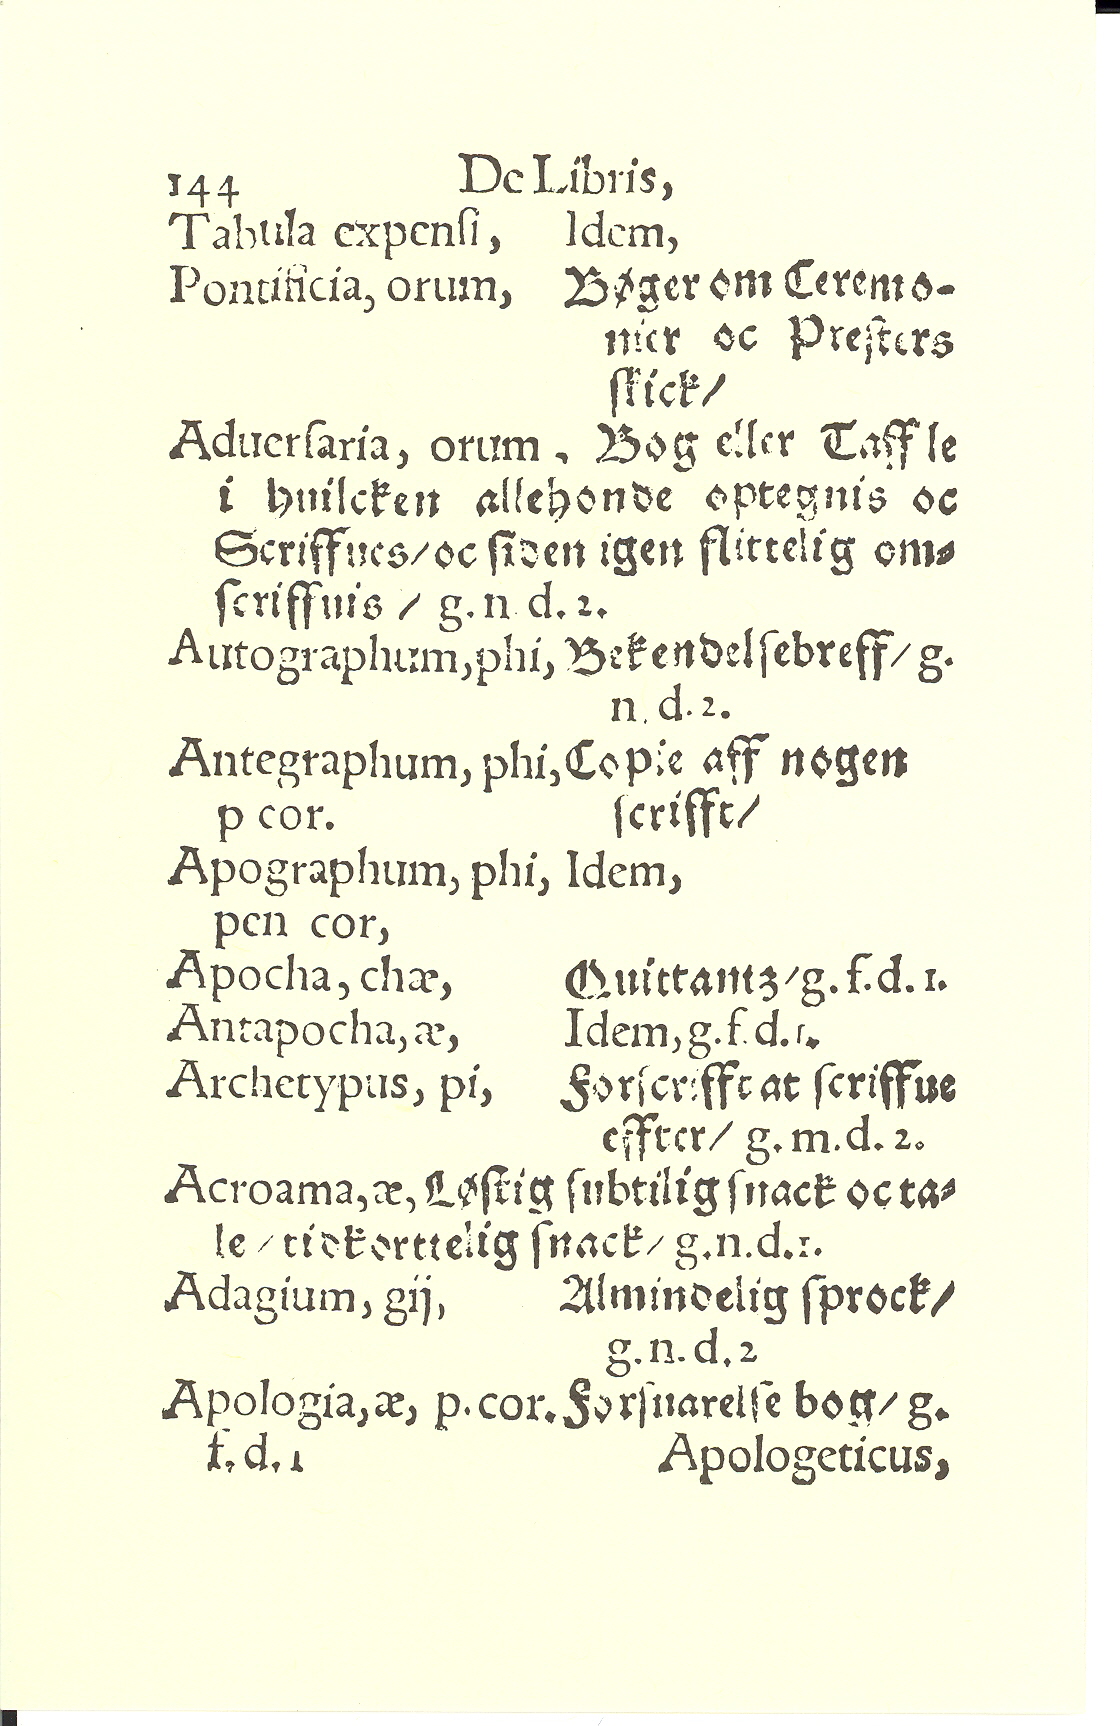 144 De Libris,
Tabula expenſi, Idem,
Pontificia, orum, Bøger om Ceremo-
nier oc Preſters
ſkick/
Aduerſaria, orum, Bog eller Taffle
i huilcken allehonde optegnis oc
Scriffues/ oc ſiden igen flittelig om-
ſcriffuis / g. n d. 2.
Autographum, phi, Bekendelſebreff/ g.
n. d. 2.
Antegraphum, phi, Copie aff nogen
p cor. ſcrifft/
Apographum, phi, Idem,
pen cor,
Apocha, chæ, Quittantz/ g. f. d. 1.
Antapocha, æ, Idem, g. f. d. 1.
Archetypus, pi, Forſcrifft at ſcriffue
effter/ g. m. d. 2.
Acroama, æ, Løſtig ſubtilig ſnack oc ta-
le / tidkorttelig ſnack/ g. n. d. 1.
Adagium, gij, Almindelig ſprock/
g. n. d. 2
Apologia, æ, p. cor. Forſuarelſe bog/ g.
f. d. 1 Apologeticus,